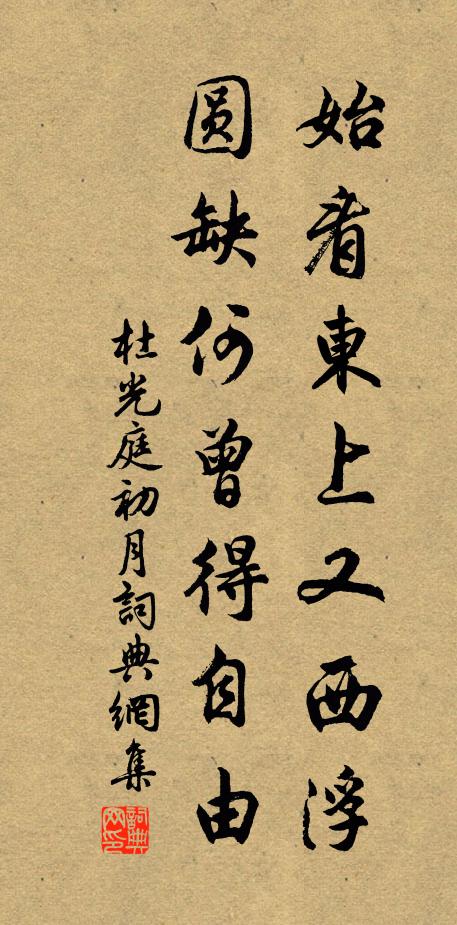 始看東上又西浮
圆缺何曾得自由
杜光庭初月詞典網集
詞典网印